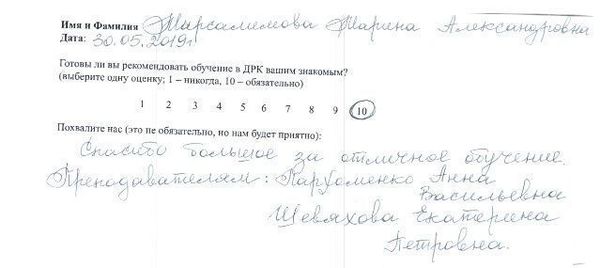 Имя и Фамилия Марсалимова Марина Александровна
Дата: 30.05.2019г
Готовы ли вы рекомендовать обучение в ДРК вашим знакомым?
(выберите одну оценку; 1 – никогда, 10 – обязательно)
1 2 3 4 5 6 7 8 9 10
Похвалите нас (это не обязательно, но нам будет приятно):
Спасибо большое за отличное обучение.
Преподавателям: Пархоменко Анна
Васильевна
Шевяхова Екатерина
Петровна.